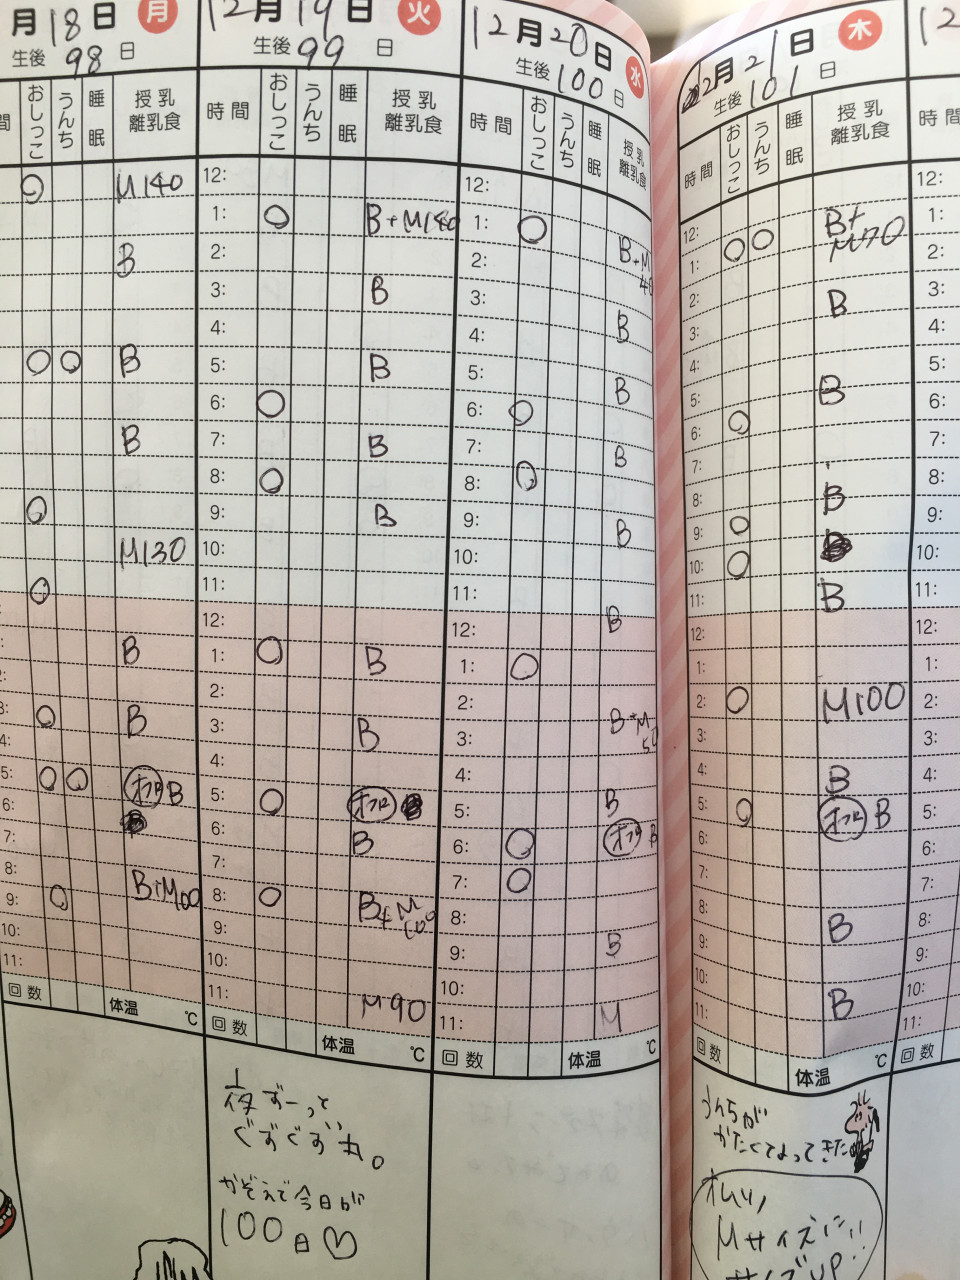 月18日 月
生後 98 日
間 おしっこ うんち 睡眠 授乳 離乳食
M140
B
B
B
M130
B
B
オフロ B
B+M
回数 体温 ℃
12月19日 火
生後 99 日
時間 おしっこ うんち 睡眠 授乳 離乳食
12:
1: B+M140
2:
3: B
4:
5: B
6:
7: B
8:
9: B
10:
11:
12:
1: B
2:
3: B
4:
5: オフロ
6: B
7:
8: B+M100
9:
10:
11: M90
回数 体温 ℃
夜ずーっと
ぐずぐず丸。
かぞえで今日が
100日♡
12月20日 水
生後 100 日
時間 おしっこ うんち 睡眠 授乳 離乳食
12:
1:
2: B+M
3:
4: B
5:
6: B
7:
8: B
9:
10: B
11:
12: B
1:
2:
3: B+M50
4:
5: B
6: オフロ B
7:
8:
9: B
10:
11: M
回数 体温 ℃
12月21日 木
生後 101 日
時間 おしっこ うんち 睡眠 授乳 離乳食
12: B+M70
1:
2: B
3:
4:
5: B
6:
7:
8: B
9:
10:
11: B
12:
1:
2: M100
3:
4: B
5: オフロ B
6:
7:
8: B
9:
10:
11: B
回数 体温 ℃
うんちが
かたくなってきた
オムツ
Mサイズに!!
サイズUP!!
12
時間
12:
1:
2:
3:
4:
5:
6:
7:
8:
9:
10:
11:
12:
1:
2:
3:
4:
5:
6:
7:
8:
9:
10:
11:
回数